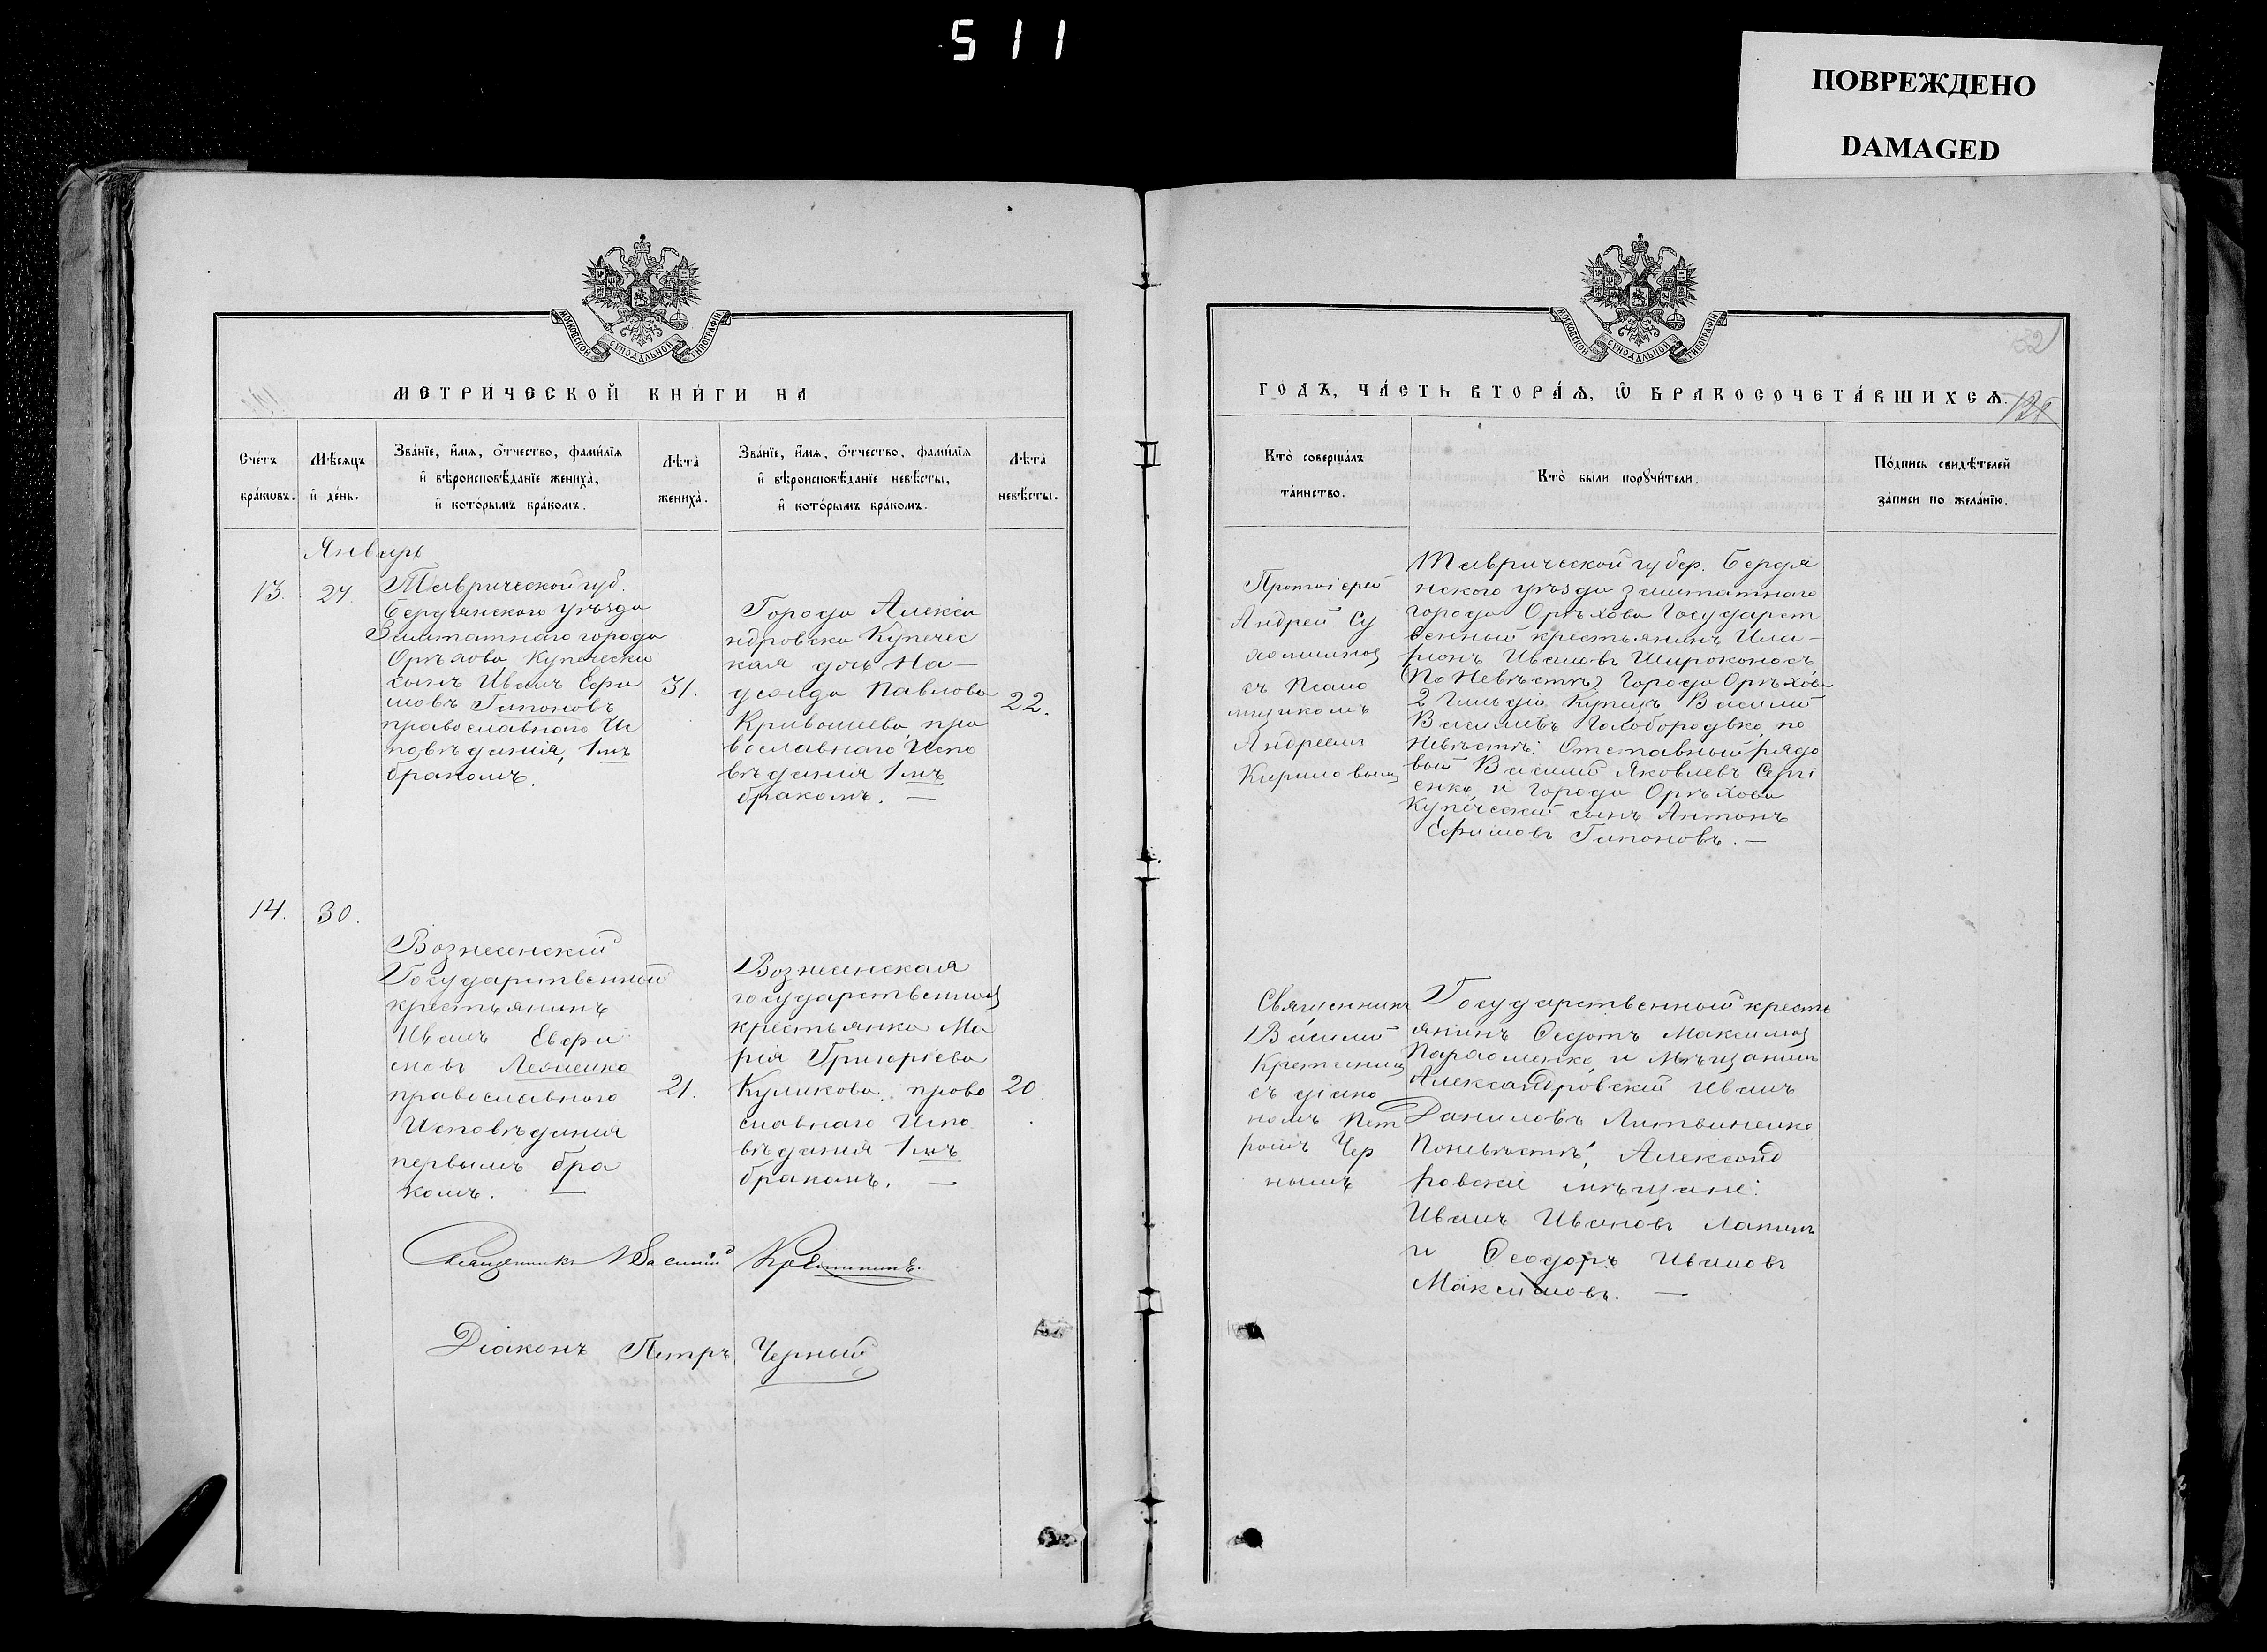 511
ПОВРЕЖДЕНО
DAMAGED
МОСКОВСКОЙ СѴНОДАЛЬНОЙ ТИПОГРАФІИ
МЕТРИ́ЧЕСКОЙ КНИ́ГИ НА
Сче́тъ бра́кѡвъ.
Мѣ́сяцъ и҆ де́нь.
Зва́нїе, и҆́мя, ѻ҆́тчество, фами́лїя
и҆ вѣроисповѣ́данїе жениха̀,
и҆ кото́рымъ бра́комъ.
Лѣта̀ жениха̀.
Зва́нїе, и҆́мя, ѻ҆́тчество, фами́лїя
и҆ вѣроисповѣ́данїе невѣ́сты,
и҆ кото́рымъ бра́комъ.
Лѣта̀ невѣ́сты.
Январь
13.
27.
Таврической губ.
Бердянского уѣзда
Заштатнаго города
Орѣхова Купечески
сынъ Иванъ Ефи
мовъ Гапоновъ
православнаго Ис
повѣданія, 1мъ
бракомъ.
31.
Города Алекса
ндровска Купечес
кая дочь На—
дежда Павлова
пра
вославнаго Испо
вѣданія 1мъ
бракомъ. —
22.
14.
30.
Вознесенский
Государственный
крестьянинъ
Иванъ Евфи
мовъ
православного
Исповѣданія
первымъ бра
комъ. —
21.
Вознесенская
государственная
крестьянка Ма
рія Григоріева
Куликова, право
славнаго Испо
вѣданія 1мъ
бракомъ. —
20.
Священникъ Василій Кретининъ.
Діаконъ Петръ Черный
МОСКОВСКОЙ СѴНОДАЛЬНОЙ ТИПОГРАФІИ
132
ГОДЪ, ЧА́СТЬ ВТОРА́Ѧ, Ѽ БРАКОСОЧЕТА́ВШИХСѦ.
Кто̀ соверша́лъ та́инство.
Кто̀ были порꙋчи́тели.
По́дпись свидѣ́телей за́писи по жела́нїю.
Протоіерей
Андрей Су
съ Псало
мщикомъ
Андреемъ
Таврической губер. Бердя
нского уѣзда заштатнаго
города Орѣхова Государст
венный крестьянинъ Ила—
ріонъ Ивановъ Широконосъ
(По Невѣстѣ) города Орѣхова
2 Гильдіи Купецъ Василий
Васильевъ Голобородько, по
Невѣстѣ: Отставный рядо
вый Василий Яковлевъ Сергі
енко и города Орѣхова
Купеческий сынъ Антонъ
Ефимовъ Гапоновъ. —
Священникъ
Василий
Кретининъ
съ діако
номъ Пет
ромъ Чер
нымъ
Государственный кресть
янинъ Федотъ Максимов
Пархоменко, и Мѣщанинъ
Александровский Иванъ
Даниловъ Литвиненко
Поневѣстѣ: Александ
ровские мѣщане:
Иванъ Ивановъ Лапинъ
и Феодоръ Ивановъ
Максимовъ. —